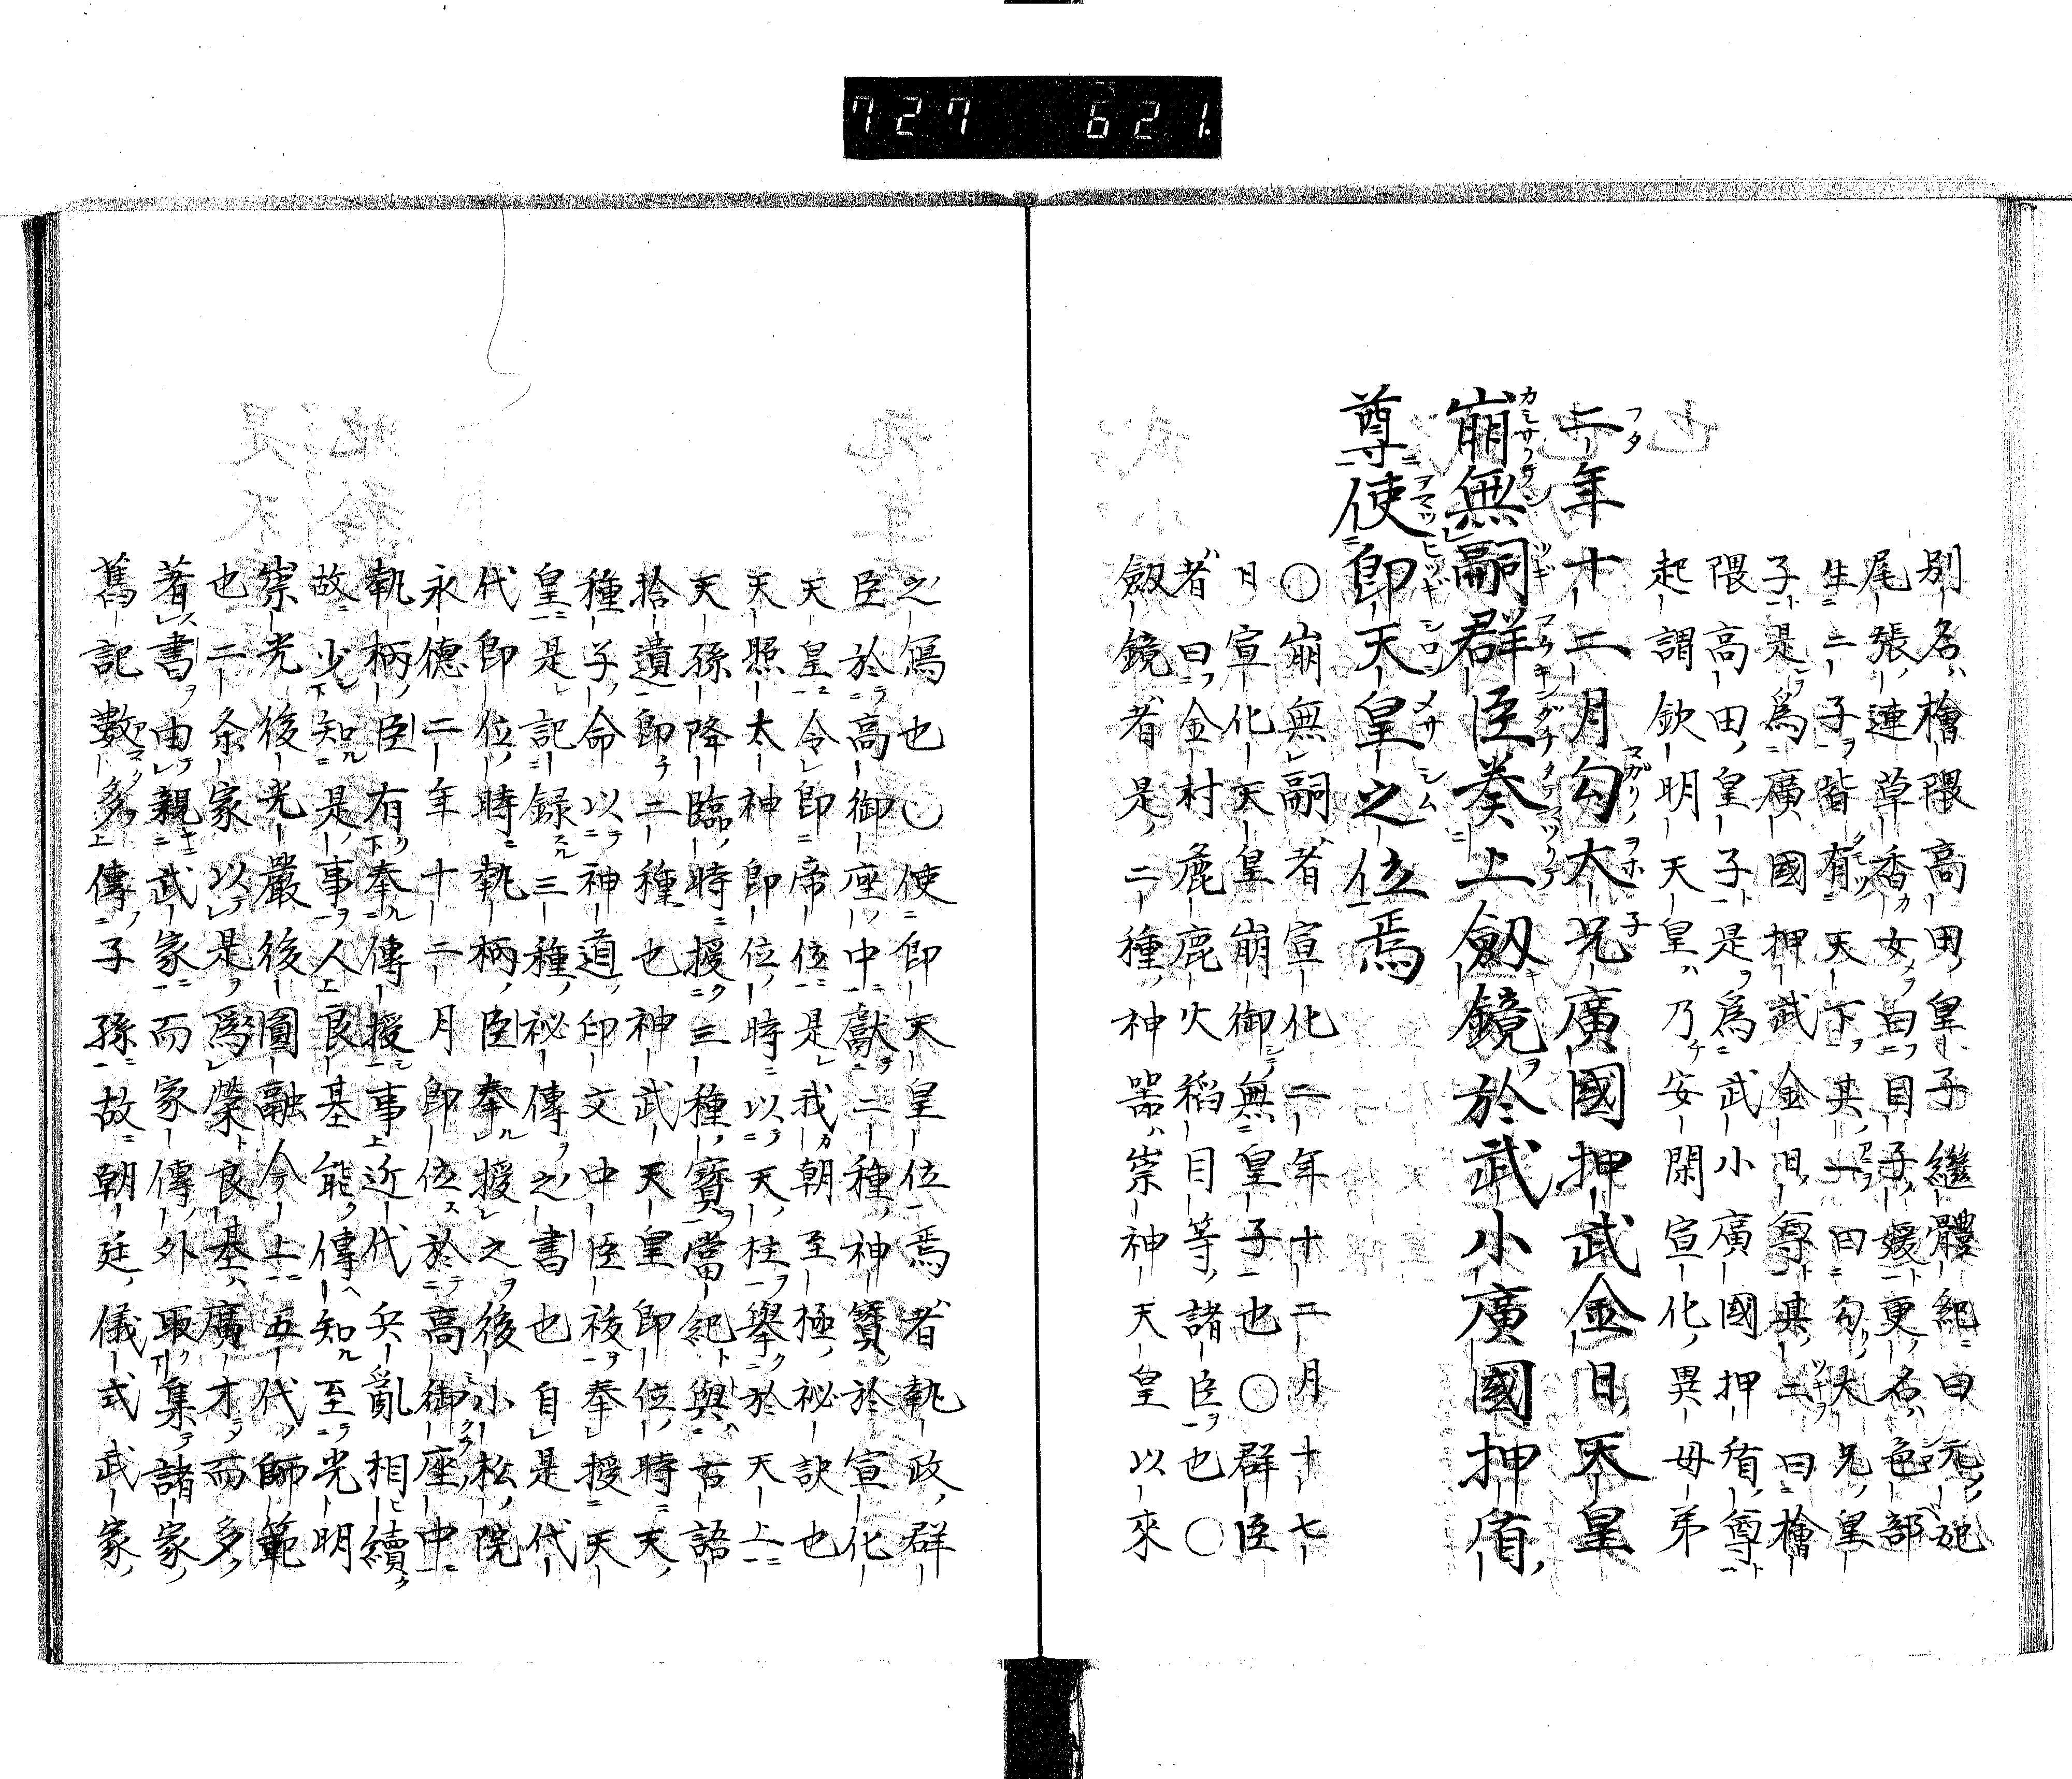 727 621.
別名檜隈高田皇子繼體紀曰元妃
尾張連草香女曰目子媛更名色部
生二子皆有天下其一曰勾大兄皇
子是爲廣國押武金日尊其二曰檜
隈高田皇子是爲武小廣國押盾尊
起謂欽明天皇乃安閑宣化異母弟
二年十二月勾大兄廣國押武金日天皇
崩無嗣群臣奏上劔鏡於武小廣國押盾
尊使即天皇之位焉
○崩無嗣者宣化二年十二月十七
日宣化天皇崩御無皇子也○群臣
者曰金村麁鹿火稻目等諸臣也○
劔鏡者是二種神噐崇神天皇以來
之寫也○使即天皇位焉者執政群
臣於高御座中獻二種神寳於宣化
天皇令即帝位是我朝至極祕訣也
天照太神即位時以天柱擧於天上
天孫降臨時授三種寳當紀與古語
拾遺即二種也神武天皇即位時天
種子命以神道印文中臣祓奉授天
皇是記録三種祕傳之書也自是代
代即位時執柄臣奉授之後小松院
永德二年十二月即位於高御座中
執柄臣有奉傳授事近代兵亂相續
故少知是事人良基能傳知至光明
崇光後光嚴後圓融今上五代師範
也二条家以是爲榮良基廣才而多
著書由親武家而家傳外取集諸家
舊記數多傳子孫故朝廷儀式武家